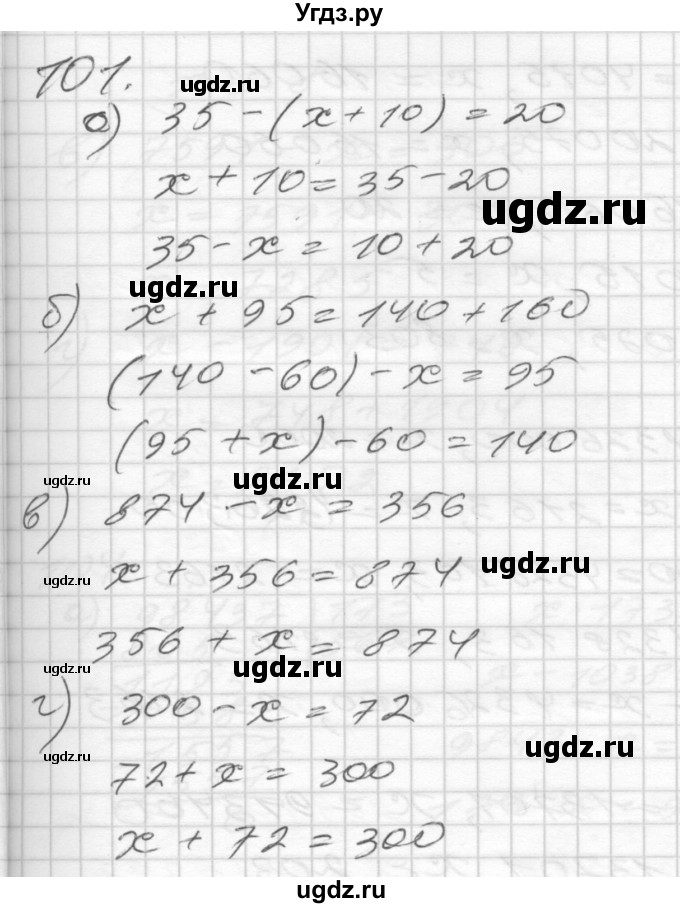 Угдз.ру
101.
ugdz.ru
а) 35 - (x + 10) = 20
x + 10 = 35 - 20
ugdz.ru
35 - x = 10 + 20
ugdz.ru
б) x + 95 = 140 + 160
(140 - 60) - x = 95
(95 + x) - 60 = 140
ugdz.ru
ugdz.ru
в) 874 - x = 356
ugdz.ru
x + 356 = 874
ugdz.ru
356 + x = 874
ugdz.ru
г) 300 - x = 72
72 + x = 300
x + 72 = 300
ugdz.ru